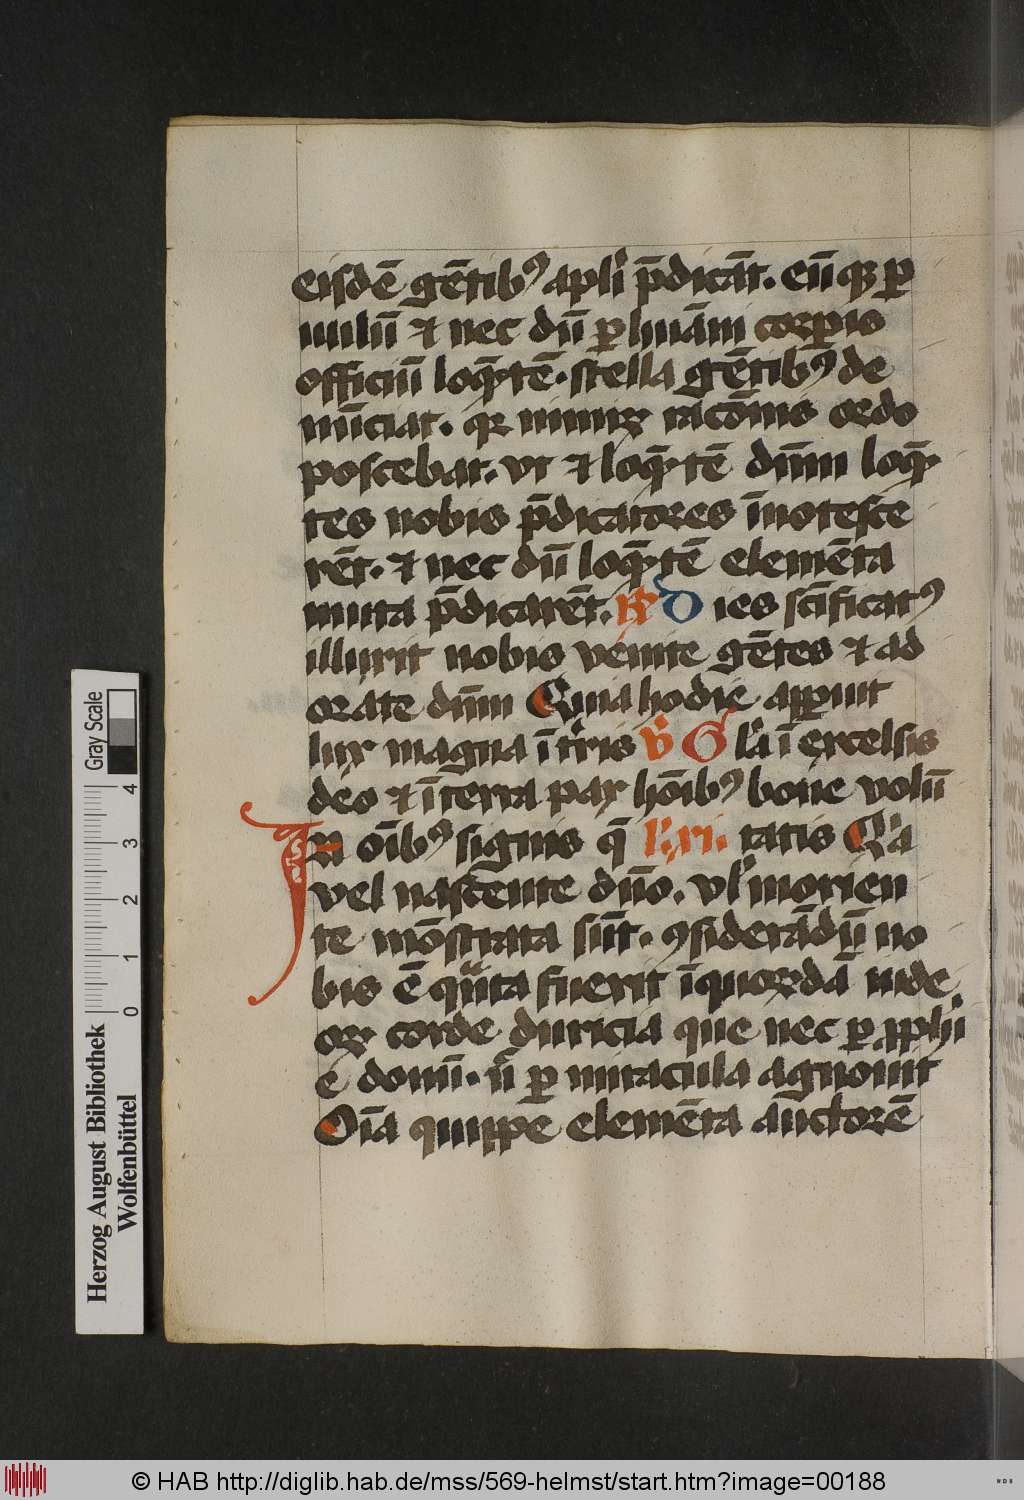 eisdē gētib⁹ apl'i p̄dicāt. eū qꝫ ꝑ
uulū ⁊ nec dū ꝑ huāni corpis
officiū loq̄tē. stella gētib⁹ de
nūciat. qr nimiꝝ racōnis ordo
poscebat. vt ⁊ loq̄tē dn̄m loq̄
tes nobis p̄dicatores īnotesce
rēt. ⁊ nec dū loq̄tē elemēta
muta p̄dicarēt. ℟ Dies scīficat⁹
illuxit nobis venite gētes ⁊ ad
orate dn̄m Quia hodie apparuit
lux magna ī t'ris ℣ Gl'a ī excelsis
deo ⁊ ī terra pax hōib⁹ bone volū
In oīb⁹ signis q̄ l'. xi. tatis Qa
vel nascente dn̄o. vl' morien
te mōstrata sūt. ꝯsiderādū no
bis ē qn̄ta fuerit ī quorūdā iude
oꝝ corde duricia que nec ꝑ ꝓph'i
e donū. n̄ ꝑ miracula agnouit
Oīa quippe elemēta auctorē
Herzog August Bibliothek
Wolfenbüttel
0 1 2 3 4
Gray Scale
© HAB http://diglib.hab.de/mss/569-helmst/start.htm?image=00188